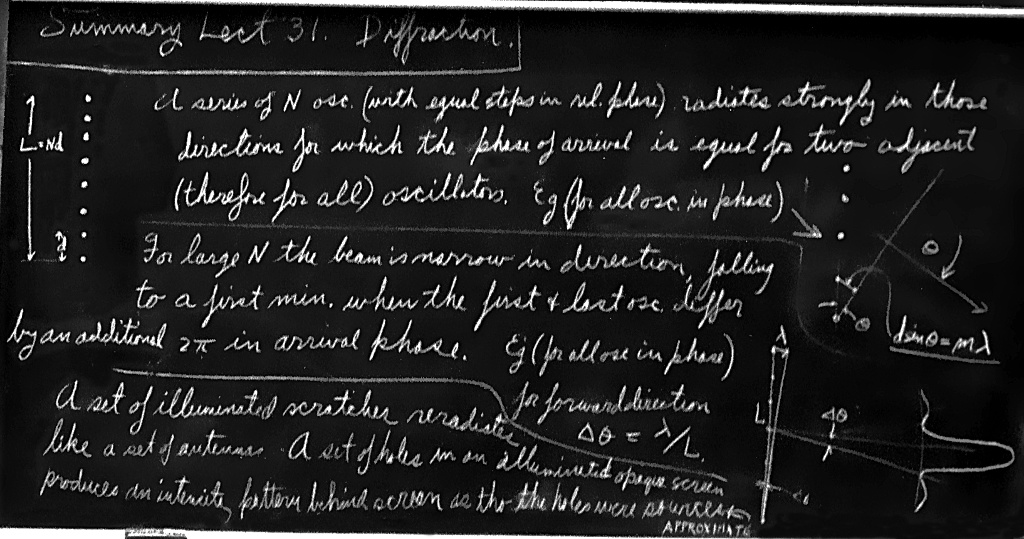 Summary Lect 31. Diffraction.
A series of N osc. (with equal steps in rel. phase) radiates strongly in those
L=Nd
directions for which the phase of arrival is equal for two adjacent
(therefore for all) oscillators. Eg (for all osc. in phase)
d
For large N the beam is narrow in direction, falling
θ
to a first min. when the first & last osc. differ
θ
by an additional 2π in arrival phase. Eg (for all osc in phase)
d sin θ = mλ
λ
for forward direction
Δθ = λ/L.
L
Δθ
A set of illuminated scratches reradiates
like a set of antennas. A set of holes in an illuminated opaque screen
produces an intensity pattern behind screen as tho the holes were sources
APPROXIMATE